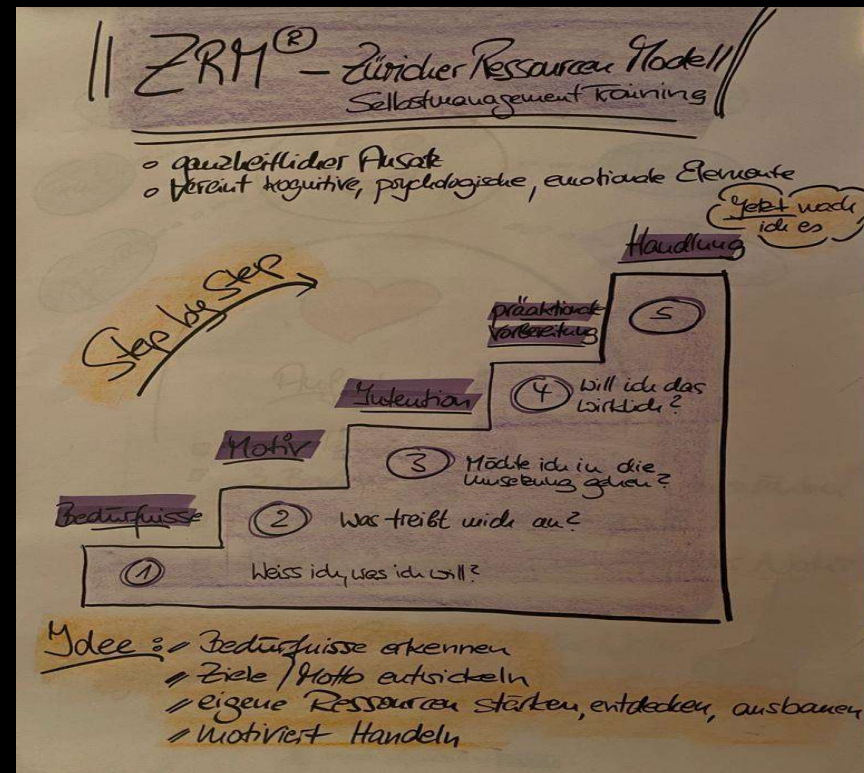 ZRM® – Züricher Ressourcen Modell
Selbstmanagement Training
○ ganzheitlicher Ansatz
○ vereint kognitive, psychologische, emotionale Elemente
Jetzt mach
ich es
Handlung
Step by Step
präaktionale
Vorbereitung
5
Intention
4 Will ich das
wirklich?
Motiv
3 Möchte ich in die
Umsetzung gehen?
Bedürfnisse
2 Was treibt mich an?
1 Weiss ich, was ich will?
Idee: Bedürfnisse erkennen
Ziele / Motto entwickeln
eigene Ressourcen stärken, entdecken, ausbauen
motiviert Handeln